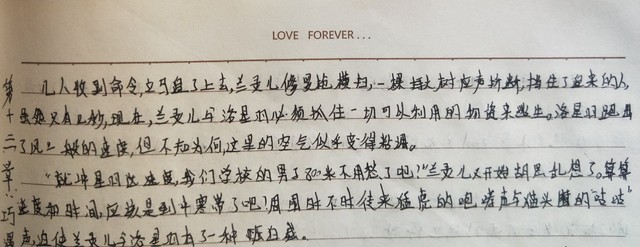 LOVE FOREVER...
几人收到命令,立马追了上去,兰灵儿像要抱横扫,一棵大树应声折断,挡住了追来的人,
虽然只有几秒,现在,兰灵儿与洛星羽必须抓住一切可以利用的物资来逃生。洛星羽跑出
了风一般的速度,但不知为何,这里的空气似乎变得粘稠。
"就冲星羽这速度,我们学校的男子800米不用愁了吧!"兰灵儿又开始胡思乱想了。算算
速度和时间,应该是到中寒带了吧!周围时不时传来猛虎的咆哮声与猫头鹰的"咕咕"
声,迫使兰灵儿与洛星羽有了一种
第十二章:巧